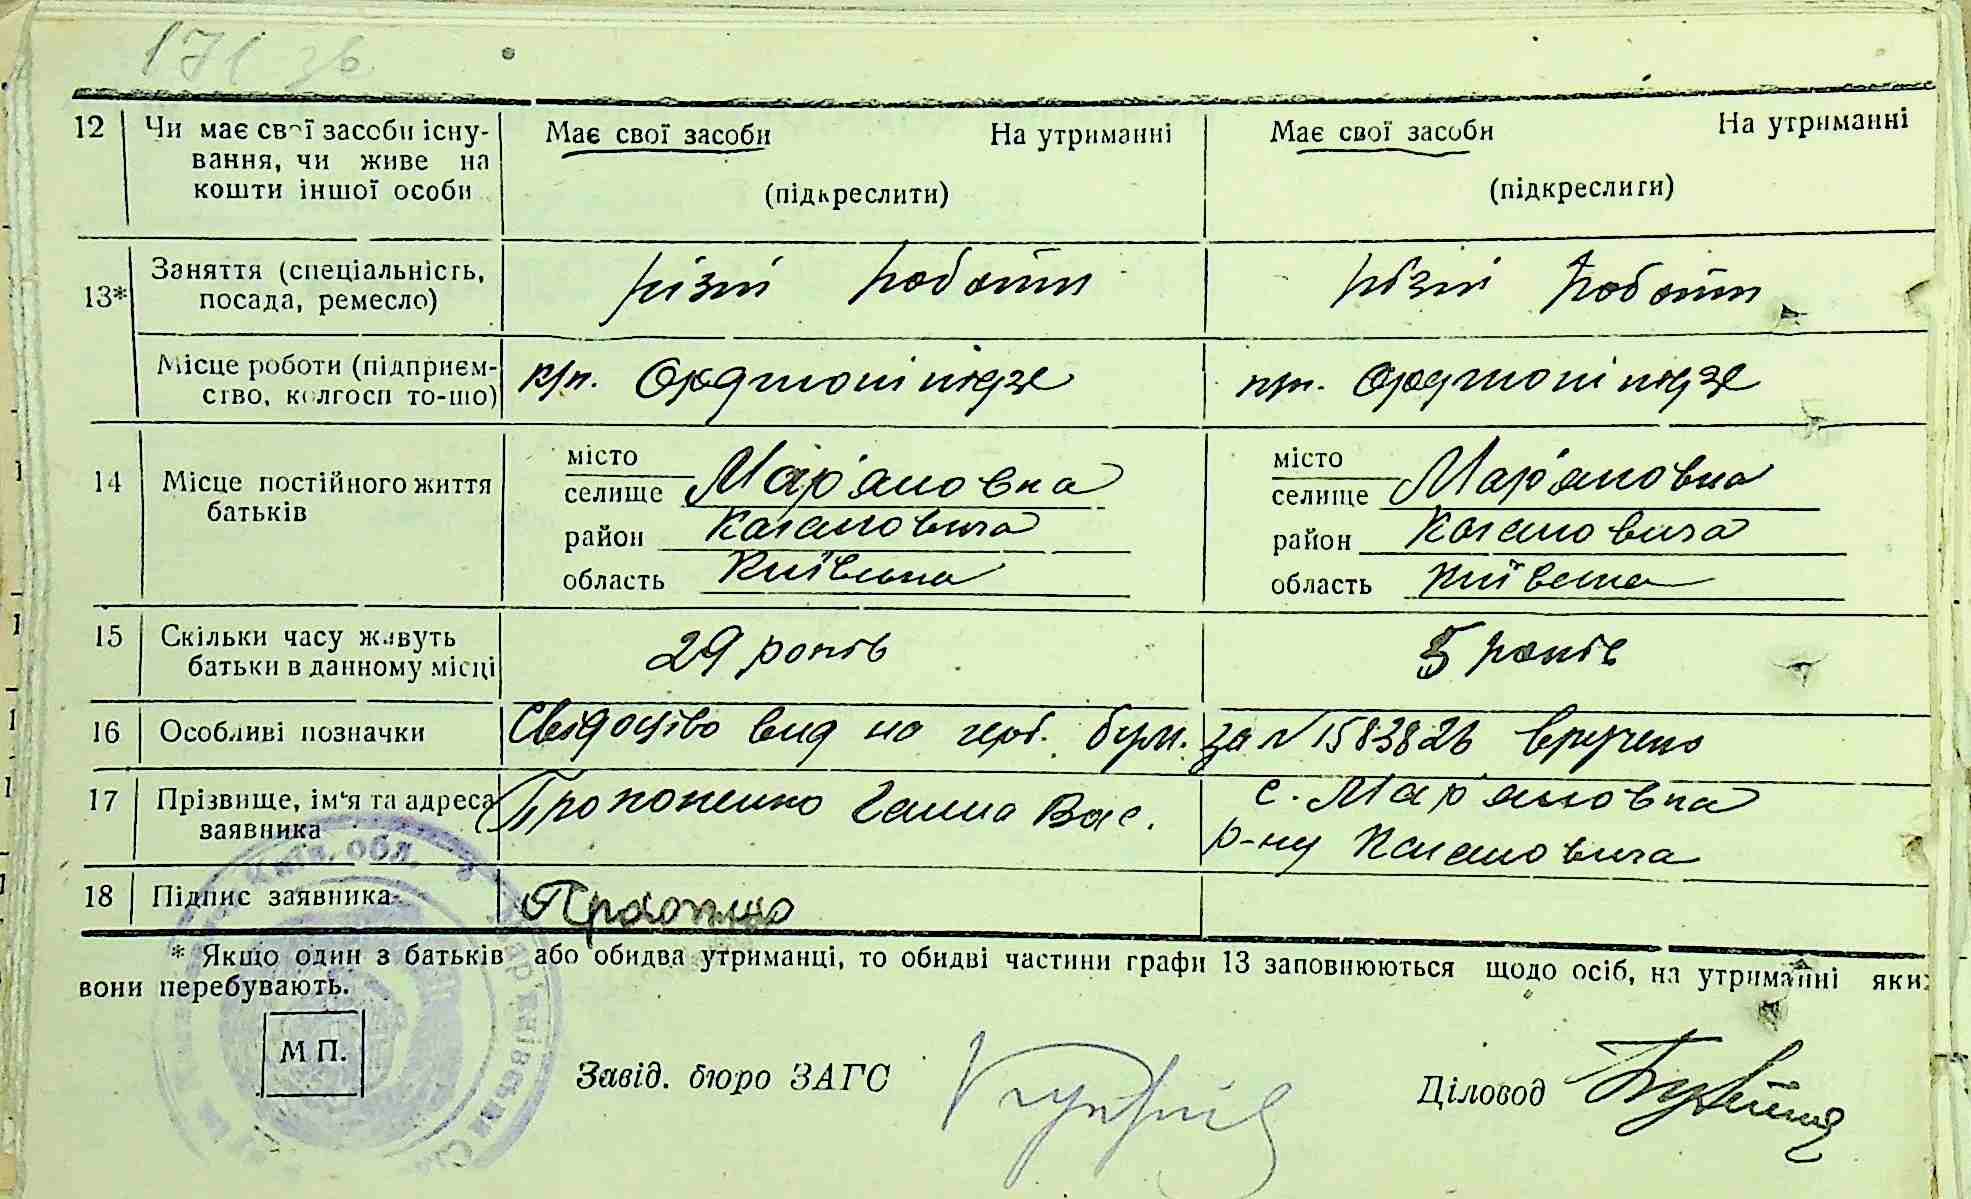 171 зв
12 Чи має свої засоби існу- Має свої засоби На утриманні Має свої засоби На утриманні
вання, чи живе на
кошти іншої особи (підкреслити) (підкреслити)
13* Заняття (спеціальність, різні роботи різні роботи
посада, ремесло)
Місце роботи (підприєм- к/п. Орджонікідзе Орджонікідзе
ство, колгосп то-що)
14 Місце постійного життя місто місто
батьків селище Мар'яновка селище Мар'яновка
район Кагановича район Кагановича
область Київська область Київська
15 Скільки часу живуть 29 років 5 років
батьки в данному місці
16 Особливі позначки Свідоцтво вид на герб. бум. за № 1583826 вручено
17 Прізвище, ім'я та адреса Прокопенко Ганна Вас. с. Мар'яновка
заявника р-ну Кагановича
18 Підпис заявника
* Якщо один з батьків або обидва утриманці, то обидві частини графи 13 заповнюються щодо осіб, на утриманні яких
вони перебувають.
М П. Завід. бюро ЗАГС Діловод
Київ. обл.